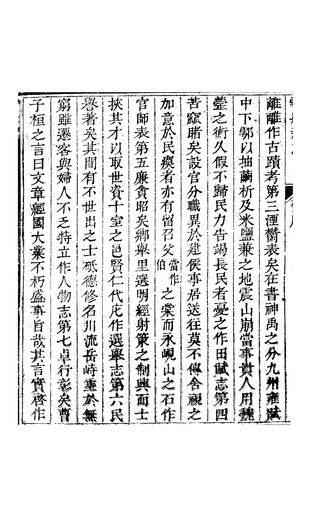 離離作古蹟考第三徑欝表矣在書神禹之分九州雍賦
中下鄠以抽繭析及米鹽兼之地震山崩當事貴人用魏
之術久假不歸民力告竭長民者憂之作田賦志第四
苦窳睹矣設官分職異於建侯事居送往莫不傳舍視之
加意於民瘼者亦有留召父當作伯之棠而永峴山之石作
官師表第五廉貪昭矣鄉舉里選明經射策之制興而士
挾其才以取世資十室之邑賢仁代庀作選舉志第六民
譽著矣其間有不世出之士砥德修名川流岳峙垂於無
窮雖遷客與婦人不乏特立作人物志第七卓行彰矣曹
子桓之言曰文章經國大業不朽盛事旨哉其言實啓作